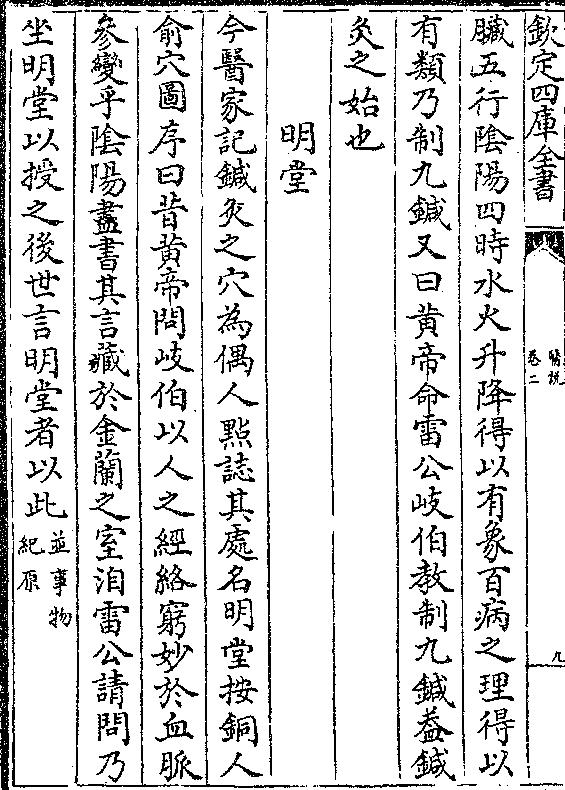 欽定四庫全書
醫説
卷二
九
臟五行陰陽四時水火升降得以有象百病之理得以
有類乃制九鍼又曰黄帝命雷公岐伯教制九鍼葢鍼
灸之始也
明堂
今醫家記鍼灸之穴為偶人點誌其處名明堂按銅人
俞穴圖序曰昔黄帝問岐伯以人之經絡窮妙於血脈
參變乎陰陽盡書其言藏於金蘭之室洎雷公請問乃
坐明堂以授之後世言明堂者以此
並事物
紀原